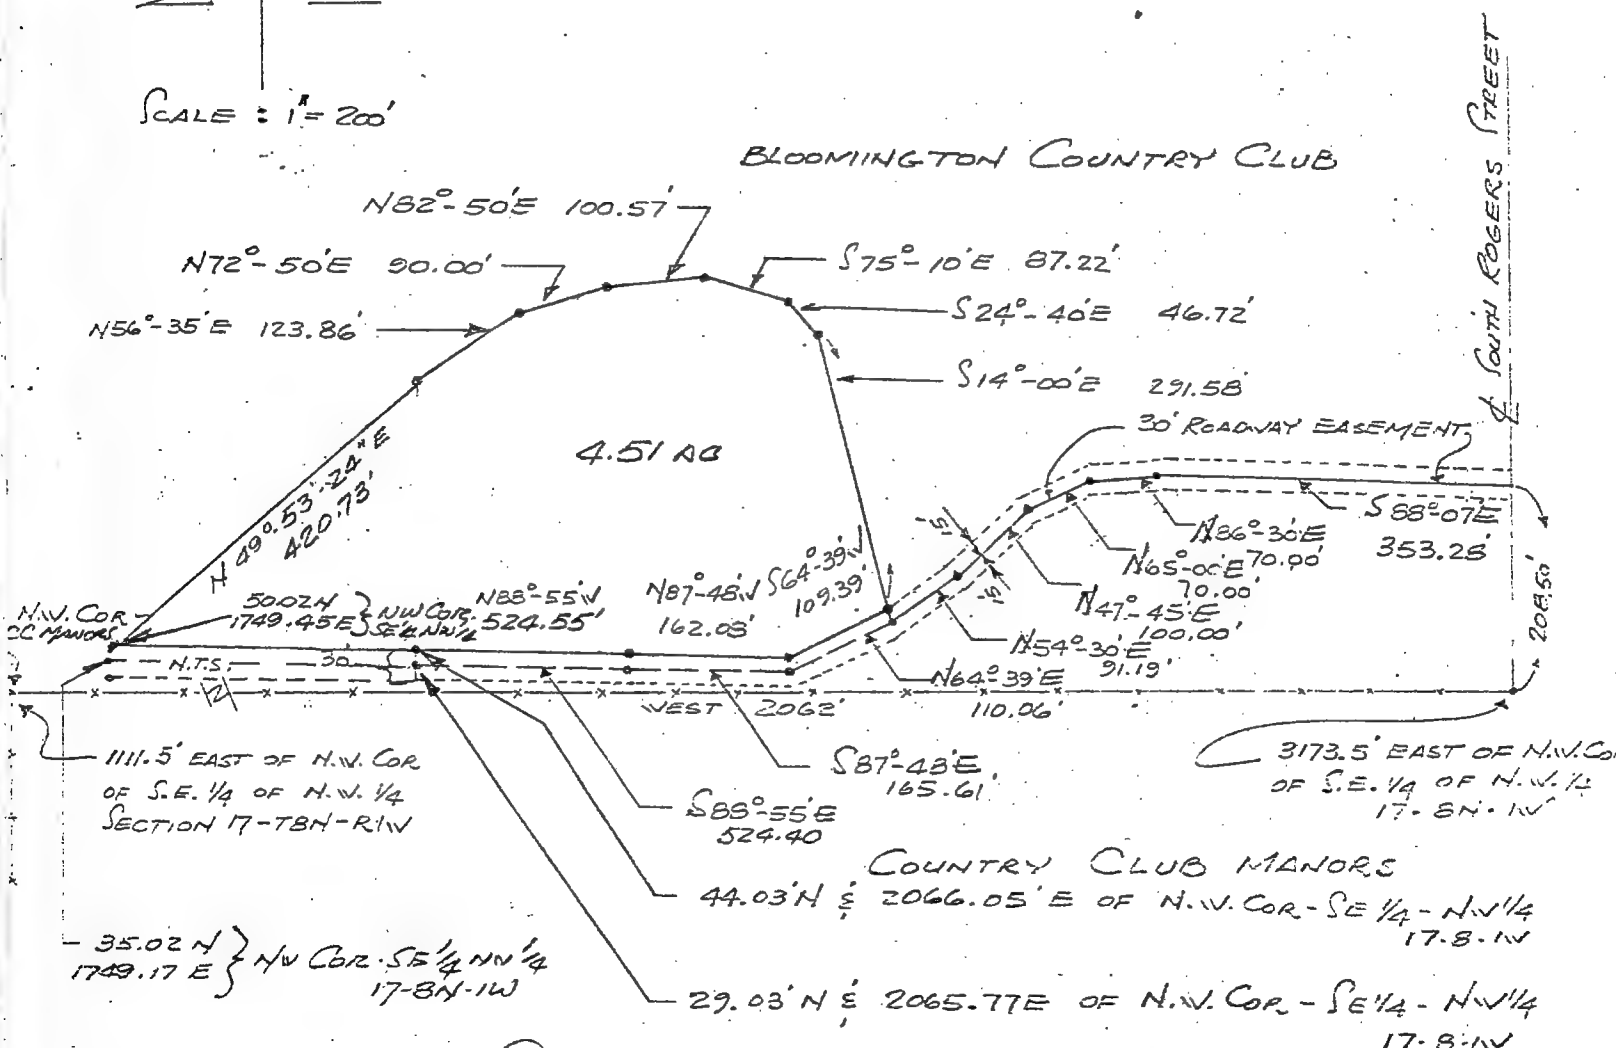 SCALE : 1"= 200'
BLOOMIINGTON COUNTRY CLUB
℄ SOUTH ROGERS STREET
N82°-50'E 100.57'
N72°-50'E 90.00'
S75°-10'E 87.22'
N56°-35'E 123.86'
S24°-40'E 46.72'
S14°-00'E 291.58'
30' ROADWAY EASEMENT
4.51 AC
N 49°-53'-24"E
420.73'
S88°-07'E
353.28'
N86°-30'E
70.00'
N65°-00'E
70.00'
N47°-45'E
100.00'
N54°-30'E
91.19'
N64°-39'E
110.06'
15'
15'
208.50'
S64°-39'W
109.39'
N87°-48'W
162.03'
N88°-55'W
524.55'
50.02N
1749.45E } NW COR.
SE¼ NW¼
N.W. COR
CC MANORS
N.T.S.
30'
WEST 2062'
1111.5' EAST OF N.W. COR
OF S.E. 1/4 OF N.W. 1/4
SECTION 17-T8N-R1W
S87°-48'E
165.61'
S88°-55'E
524.40
3173.5' EAST OF N.W. CO
OF S.E. 1/4 OF N.W. 1/4
17-8N-1W
COUNTRY CLUB MANORS
44.03'N & 2066.05'E OF N.W. COR - SE 1/4 - NW 1/4
17-8-1W
35.02 N
1749.17 E } NW COR. SE 1/4 NW 1/4
17-8N-1W
29.03'N & 2065.77E OF N.W. COR - SE 1/4 - NW 1/4
17-8-1W